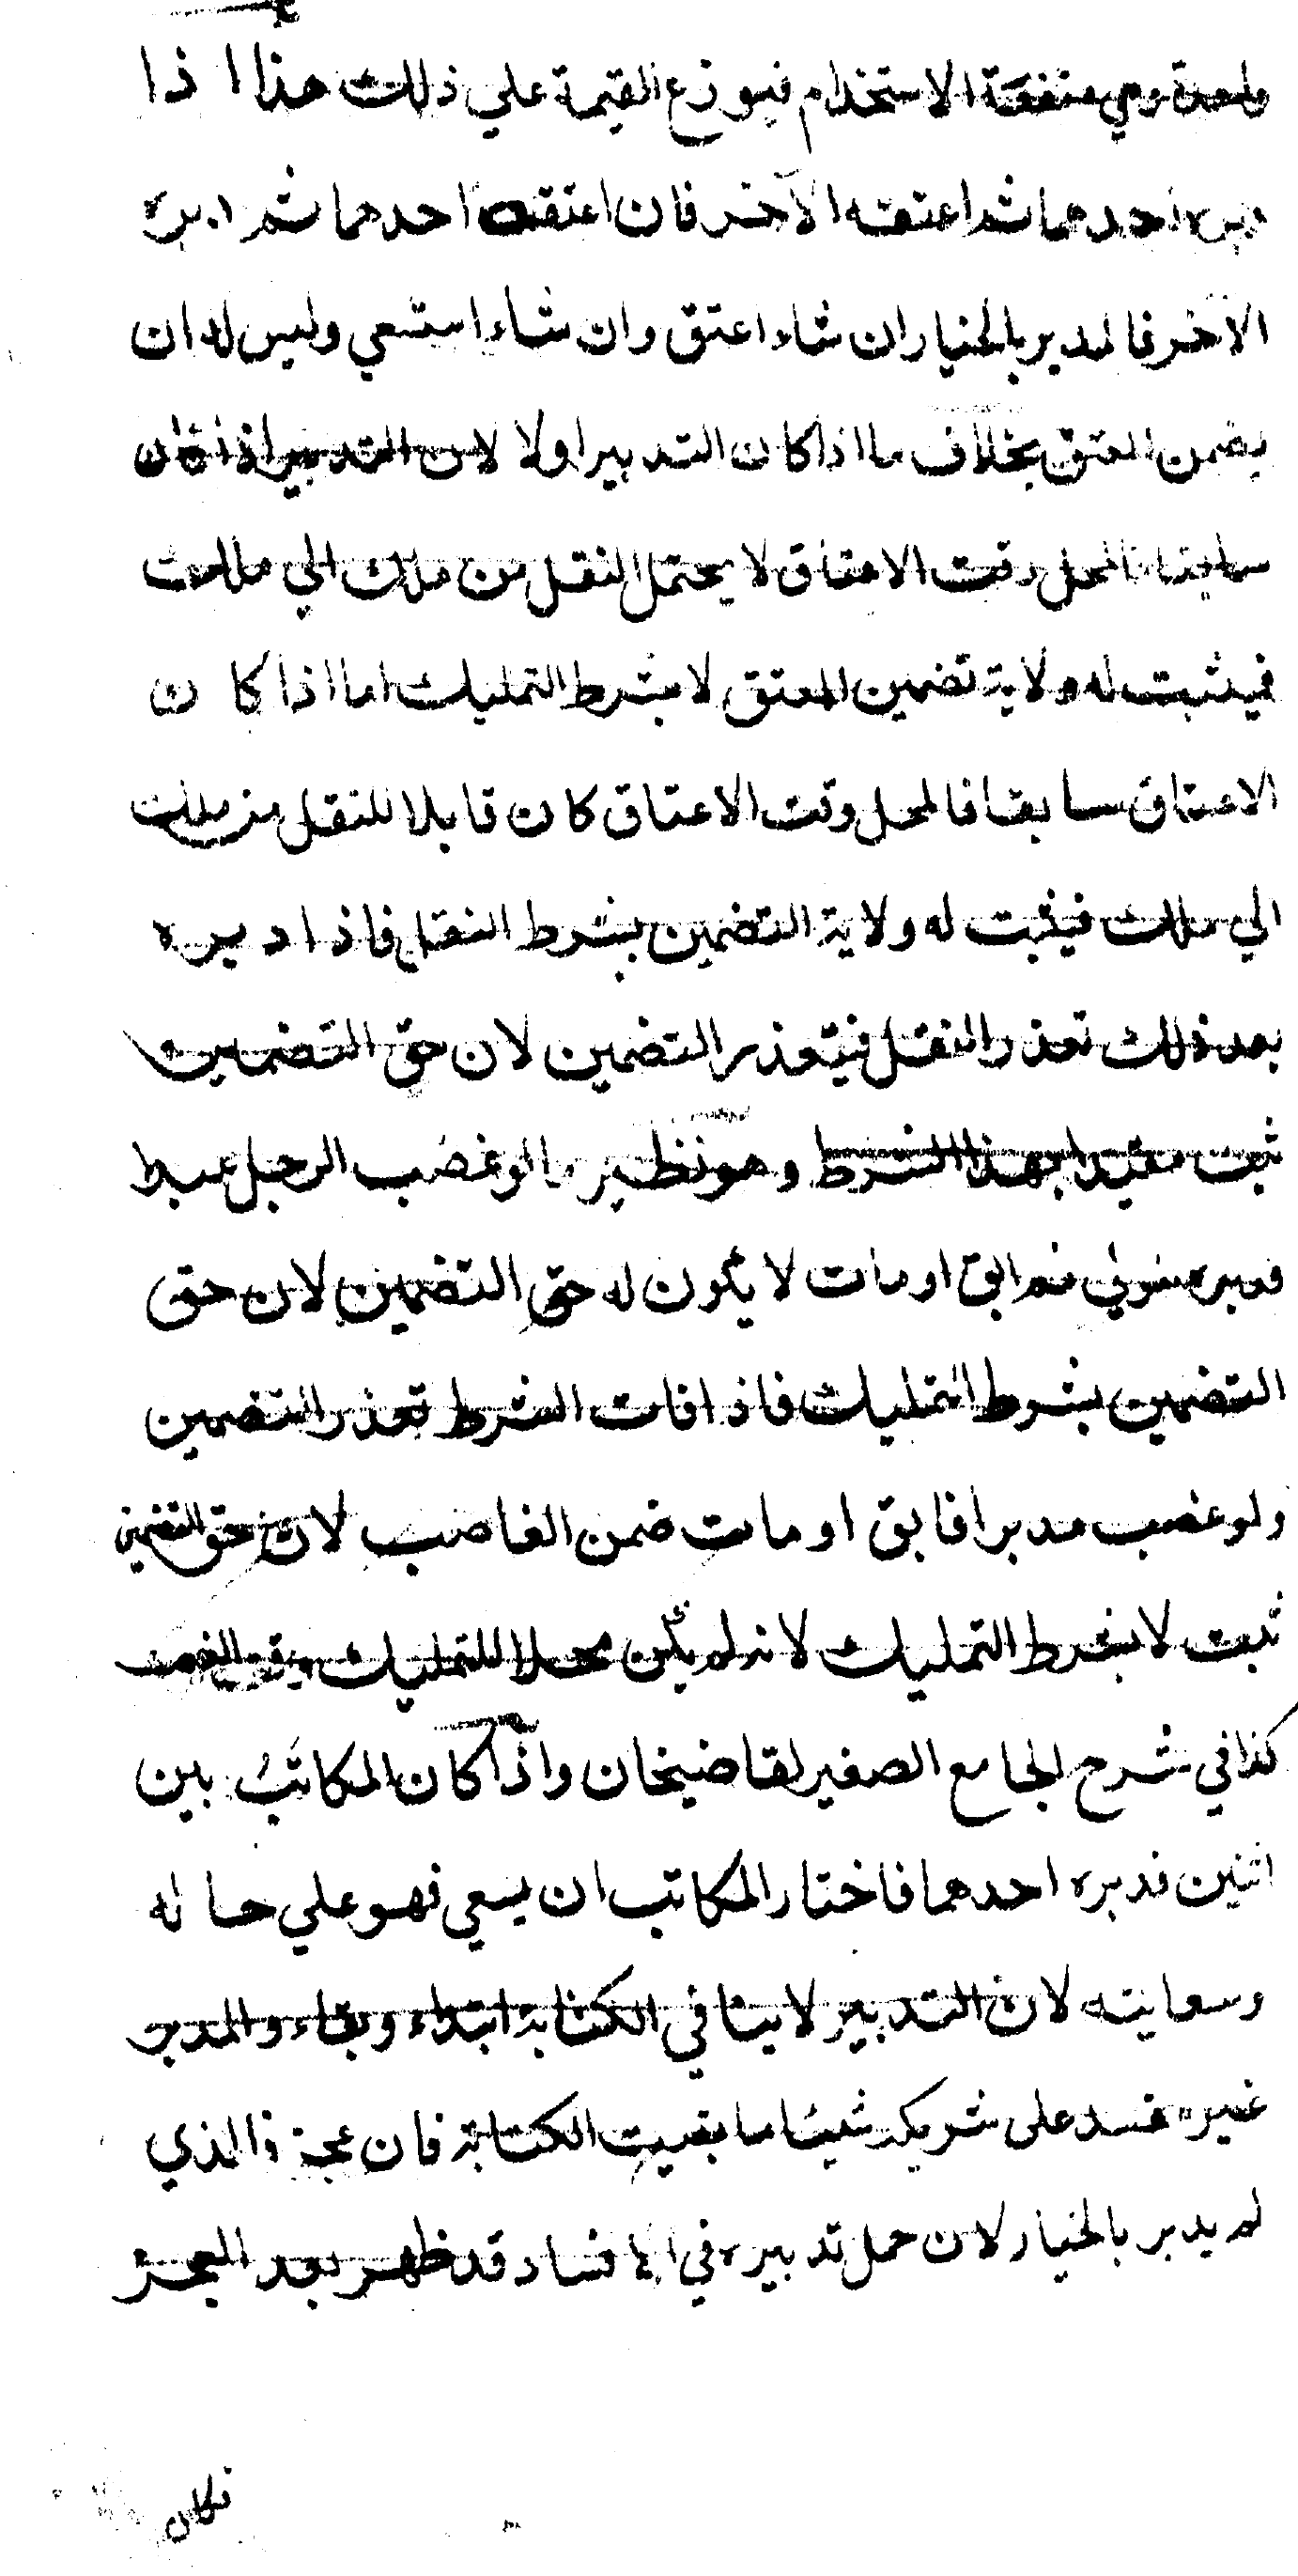 واحدة وهي منفعة الاستخدام فيوزع القيمة علي ذلك هذا اذا
دبره احدهما ثم اعتقه الآخر فان اعتقه احدهما ثم دبره
الآخر فالمدبر بالخيار ان شاء اعتق وان شاء استسعي وليس له ان
يضمن المعتق بخلاف ما اذا كان التدبير اولا لان التدبير اذا كان
سابقا فالمحل وقت الاعتاق لا يحتمل النقل من ملك الي ملك
فيثبت له ولاية تضمين المعتق لا بشرط التمليك اما اذا كان
الاعتاق سابقا فالمحل وقت الاعتاق كان قابلا للنقل من ملك
الي ملك فيثبت له ولاية التضمين بشرط النقل فاذا دبره
بعد ذلك تعذر النقل فيتعذر التضمين لان حق التضمين
ثبت مقيدا بهذا الشرط وهو نظير ما لو غصب الرجل عبدا
فدبره مولي ثم ابق او مات لا يكون له حق التضمين لان حق
التضمين بشرط التمليك فاذا فات الشرط تعذر التضمين
ولو غصب مدبرا فابق او مات ضمن الغاصب لان حق التضمين
ثبت لا بشرط التمليك لانه لم يكن محلا للتمليك وقت الغصب
كذا في شرح الجامع الصغير لقاضيخان واذا كان المكاتَبُ بين
اثنين فدبره احدهما فاختار المكاتب ان يسعي فهو علي حاله
وسعايته لان التدبير لا ينافي الكتابة ابتداء وبقاء والمدبر
غير مفسد على شريكه شيئا ما بقيت الكتابة فان عجز فالذي
لم يدبر بالخيار لان حمل تدبيره في الافساد قد ظهر بعد العجز
فكان